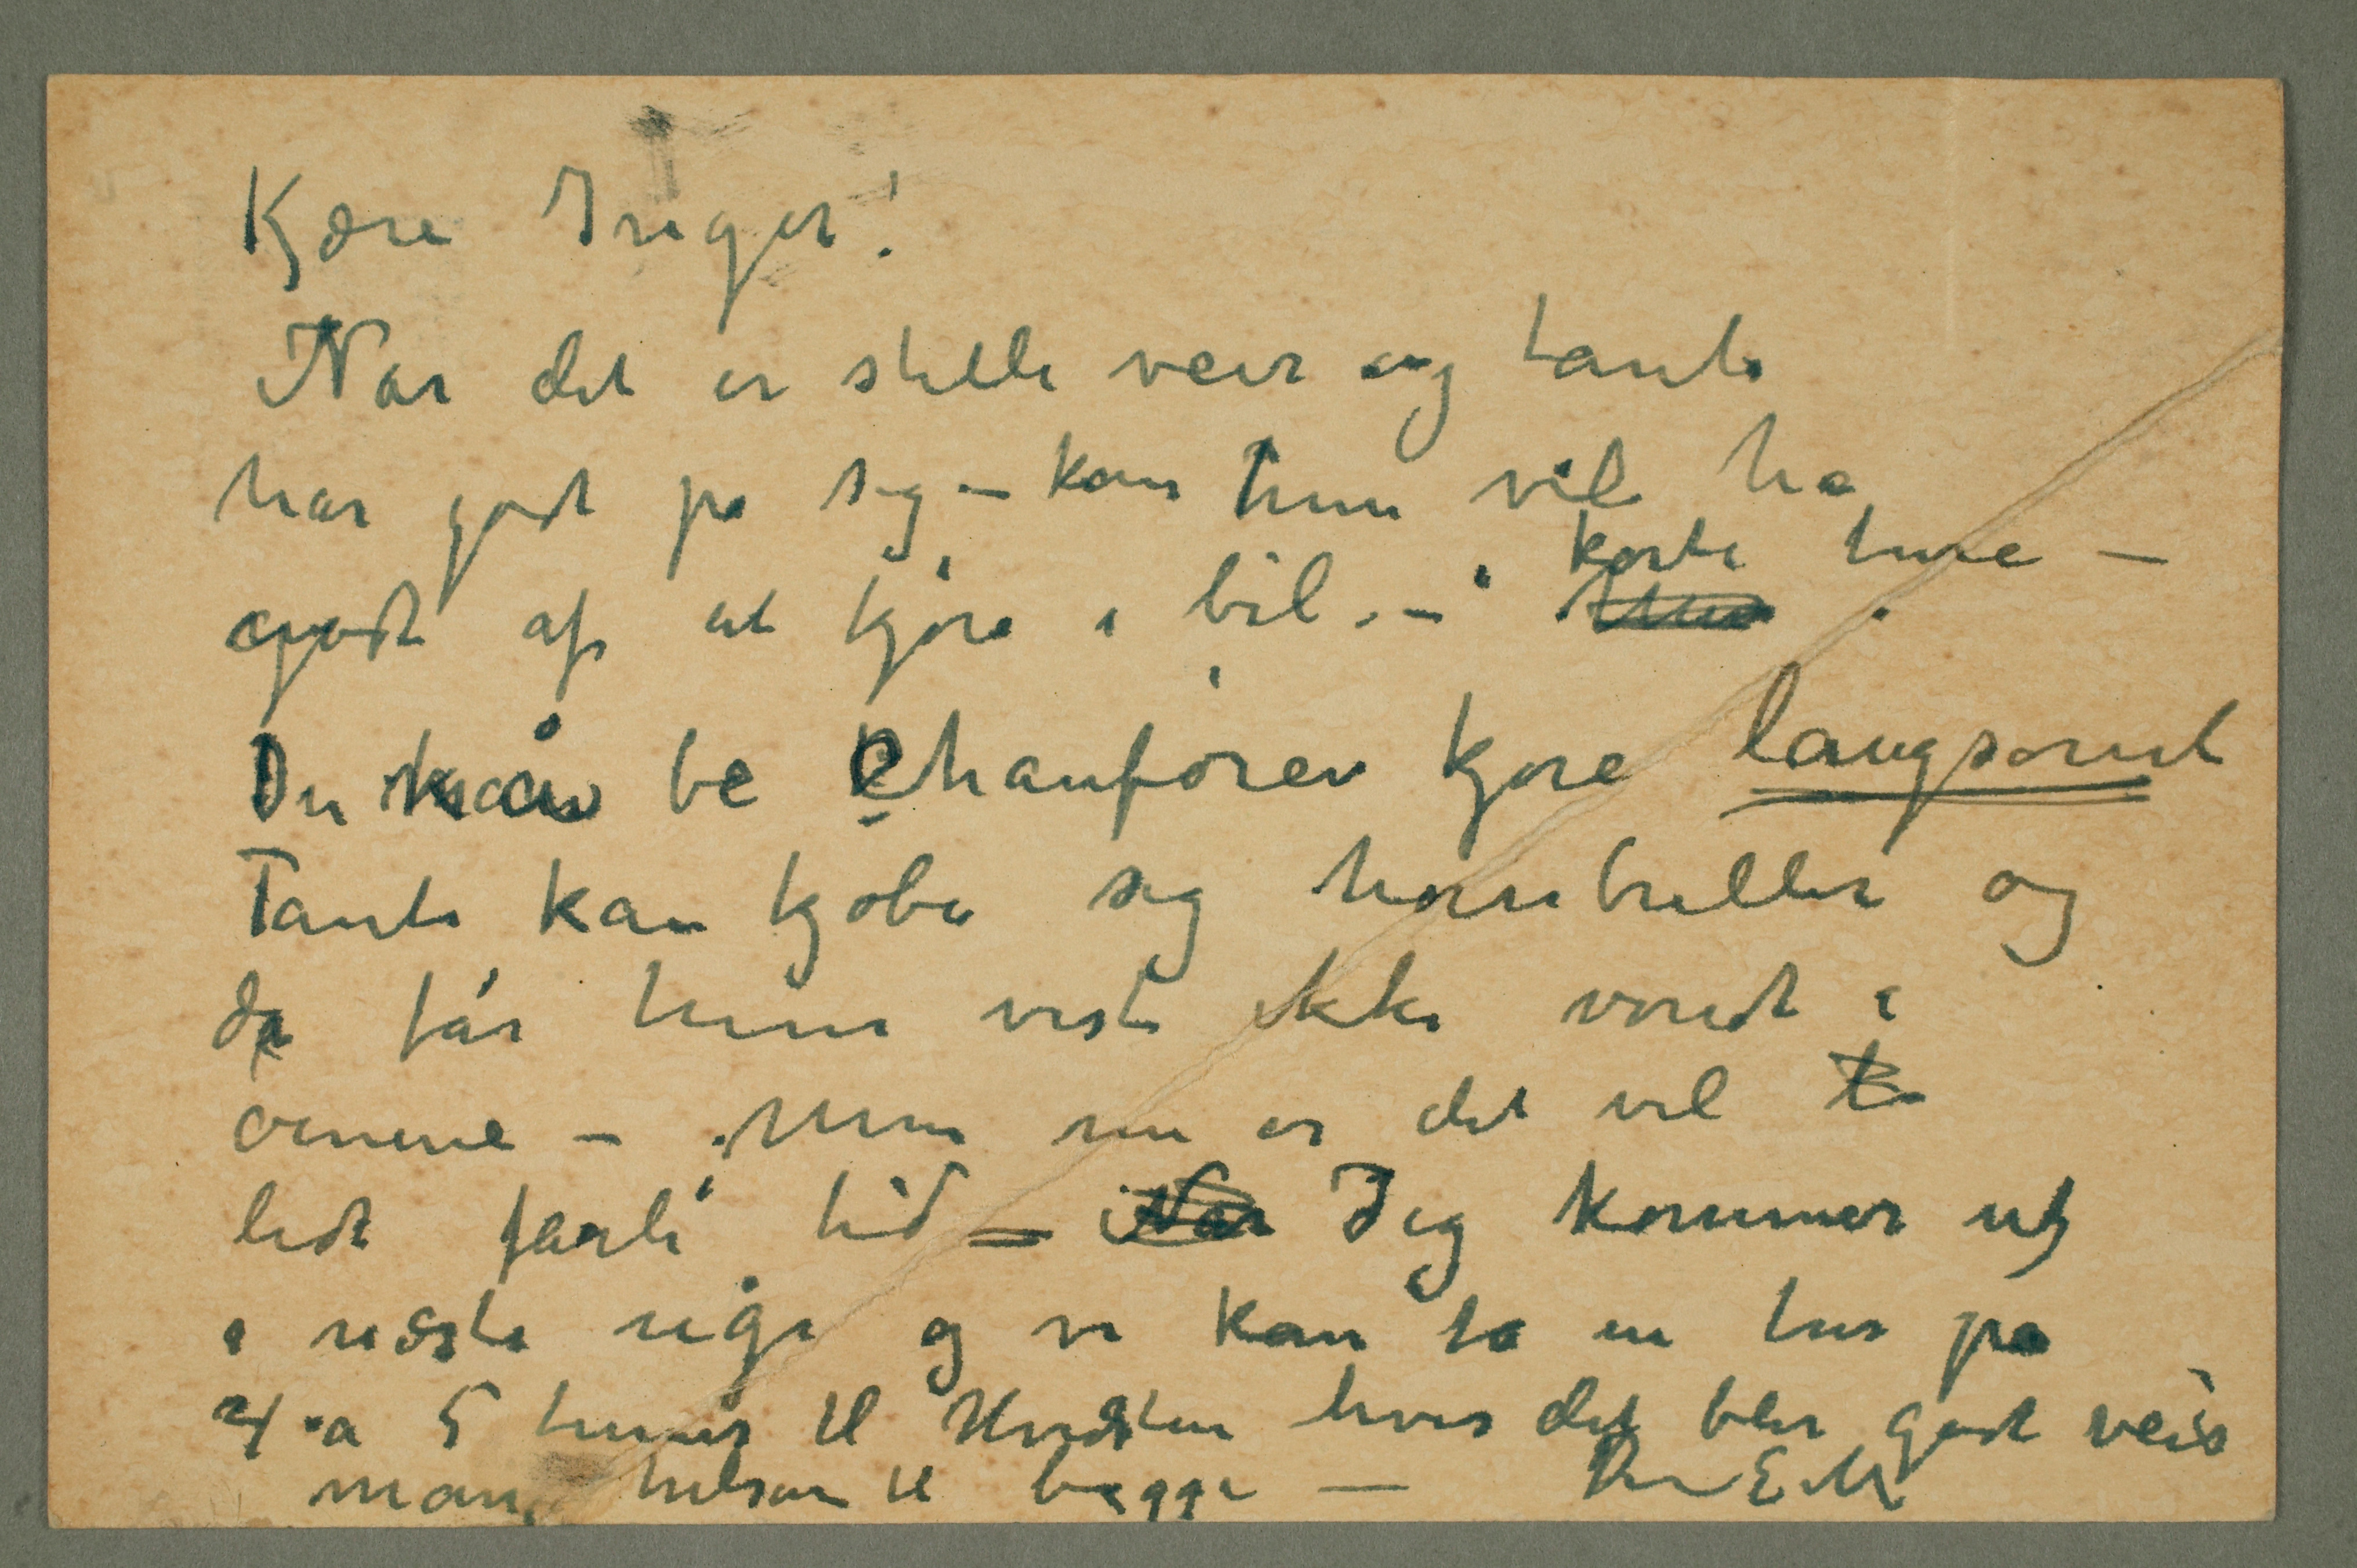 Kjære Inger!
Når det er stille veir og tante
har godt på sig – kan hun vil ha
godt af at kjøre i bil. – i korte ture –
Du må be Chauføren kjøre langsomt
Tante kan kjøbe sig hornbriller og
da får hun vist ikke vondt i
øinene – Men nu er det vel
lidt farli tid – Jeg kommer ut
i næste uge og vi kan ta en tur på
4 a 5 timer til Hvidsten hvis det blir godt veir
mange hilsen til begge – Din E M